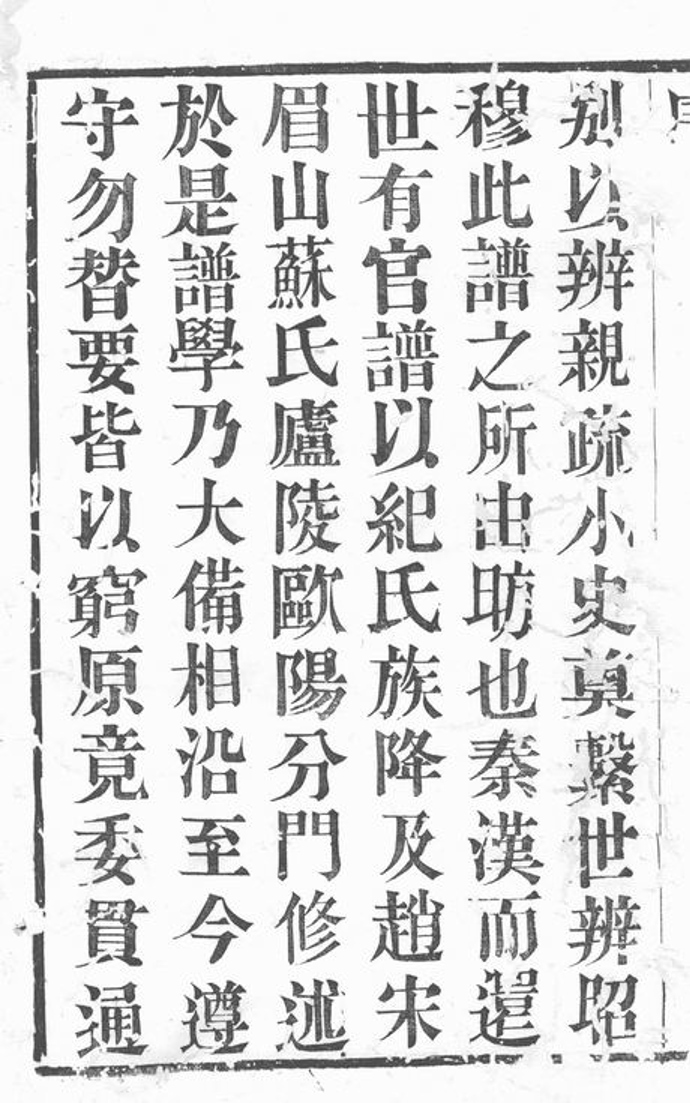 別以辨親疏小史奠繫世辨昭
穆此譜之所由昉也秦漢而還
世有官譜以紀氏族降及趙宋
眉山蘇氏廬陵歐陽分門修述
於是譜學乃大備相沿至今遵
守勿替要皆以窮原竟委貫通